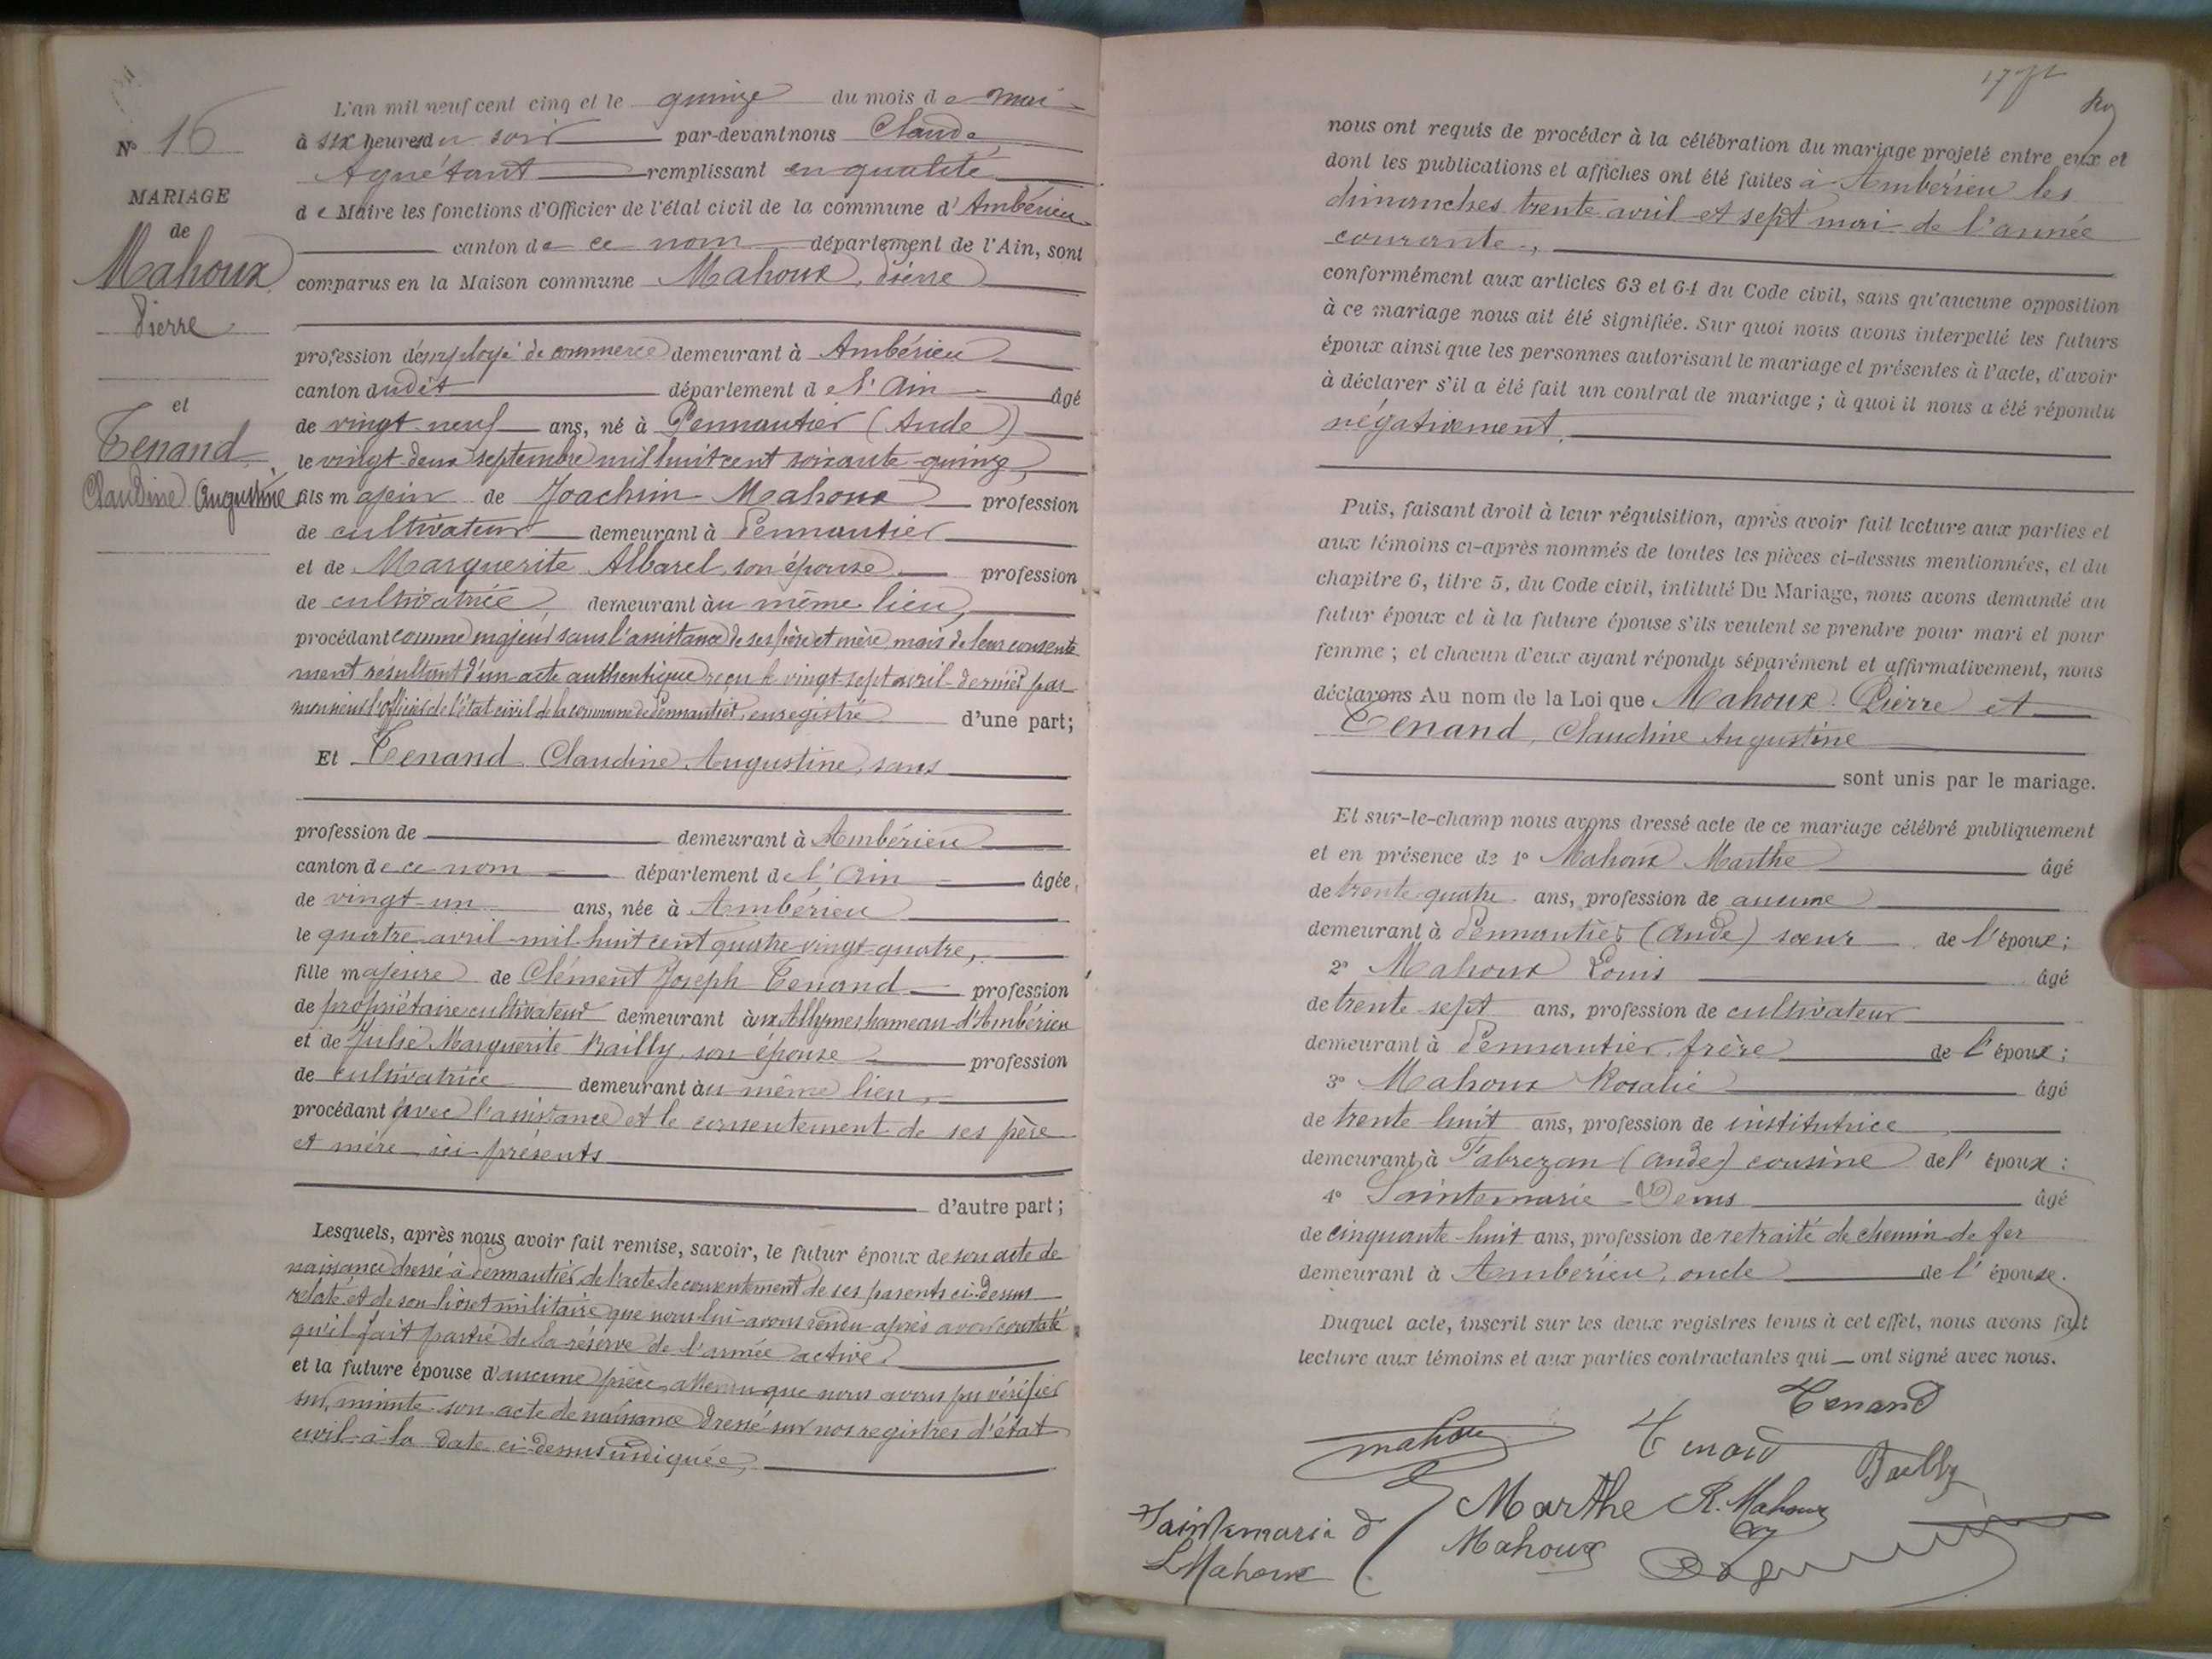 N° 16
MARIAGE
de
Mahoux
Pierre
et
Tenand
Claudine Augustine
L'an mil neuf cent cinq et le quinze du mois de mai
à six heures du soir par-devant nous Claude
Aguétant remplissant en qualité
de Maire les fonctions d'Officier de l'état civil de la commune d'Ambérieu
canton de ce nom département de l'Ain, sont
comparus en la Maison commune Mahoux, Pierre
profession d'employé de commerce demeurant à Ambérieu
canton dudit département de l'Ain âgé
de vingt neuf ans, né à Pennautier (Aude)
le vingt-deux septembre mil huit cent soixante-quinze,
fils majeur de Joachim Mahoux profession
de cultivateur demeurant à Pennautier
et de Marguerite Albarel, son épouse profession
de cultivatrice demeurant au même lieu,
procédant comme majeur sans l'assistance de ses père et mère, mais de leur consente
ment résultant d'un acte authentique reçu le vingt-sept avril dernier par
monsieur l'officier de l'état civil de la commune de Pennautier, enregistré d'une part;
Et Tenand Claudine Augustine, sans
profession de demeurant à Ambérieu
canton de ce nom département de l'Ain âgée
de vingt-un ans, née à Ambérieu
le quatre avril mil huit cent quatre-vingt-quatre,
fille majeure de Clément Joseph Tenand profession
de propriétaire cultivateur demeurant aux Allymes hameau d'Ambérieu
et de Julie Marguerite Bailly, son épouse profession
de cultivatrice demeurant au même lieu,
procédant avec l'assistance et le consentement de ses père
et mère ici présents
d'autre part;
Lesquels, après nous avoir fait remise, savoir, le futur époux de son acte de
naissance dressé à Pennautier, de l'acte de consentement de ses parents ci-dessus
relaté et de son livret militaire que nous lui avons rendu après avoir constaté
qu'il fait partie de la réserve de l'armée active.
et la future épouse d'aucune pièce, attendu que nous avons pu vérifier
sur minute son acte de naissance dressé sur nos registres d'état
civil à la date ci-dessus indiquée,
17
nous ont requis de procéder à la célébration du mariage projeté entre eux et
dont les publications et affiches ont été faites à Ambérieu les
dimanches trente avril et sept mai de l'année
courante,
conformément aux articles 63 et 64 du Code civil, sans qu'aucune opposition
à ce mariage nous ait été signifiée. Sur quoi nous avons interpellé les futurs
époux ainsi que les personnes autorisant le mariage et présentes à l'acte, d'avoir
à déclarer s'il a été fait un contrat de mariage ; à quoi il nous a été répondu
négativement.
Puis, faisant droit à leur réquisition, après avoir fait lecture aux parties et
aux témoins ci-après nommés de toutes les pièces ci-dessus mentionnées, et du
chapitre 6, titre 5, du Code civil, intitulé Du Mariage, nous avons demandé au
futur époux et à la future épouse s'ils veulent se prendre pour mari et pour
femme ; et chacun d'eux ayant répondu séparément et affirmativement, nous
déclarons Au nom de la Loi que Mahoux Pierre et
Tenand, Claudine Augustine
sont unis par le mariage.
Et sur-le-champ nous avons dressé acte de ce mariage célébré publiquement
et en présence de 1° Mahoux Marthe âgé
de trente-quatre ans, profession de aucune
demeurant à Pennautier (Aude) sœur de l'époux ;
2° Mahoux Louis âgé
de trente-sept ans, profession de cultivateur
demeurant à Pennautier, frère de l'époux ;
3° Mahoux Rosalie âgé
de trente-huit ans, profession de institutrice
demeurant à Fabrezan (Aude) cousine de l'époux ;
4° Saintemarie Denis âgé
de cinquante-huit ans, profession de retraité de chemin de fer
demeurant à Ambérieu, oncle de l'épouse.
Duquel acte, inscrit sur les deux registres tenus à cet effet, nous avons fait
lecture aux témoins et aux parties contractantes qui ont signé avec nous.
Tenand
Mahoux Tenand Bailly
Marthe R. Mahoux
Saintemarie d Mahoux
L Mahoux